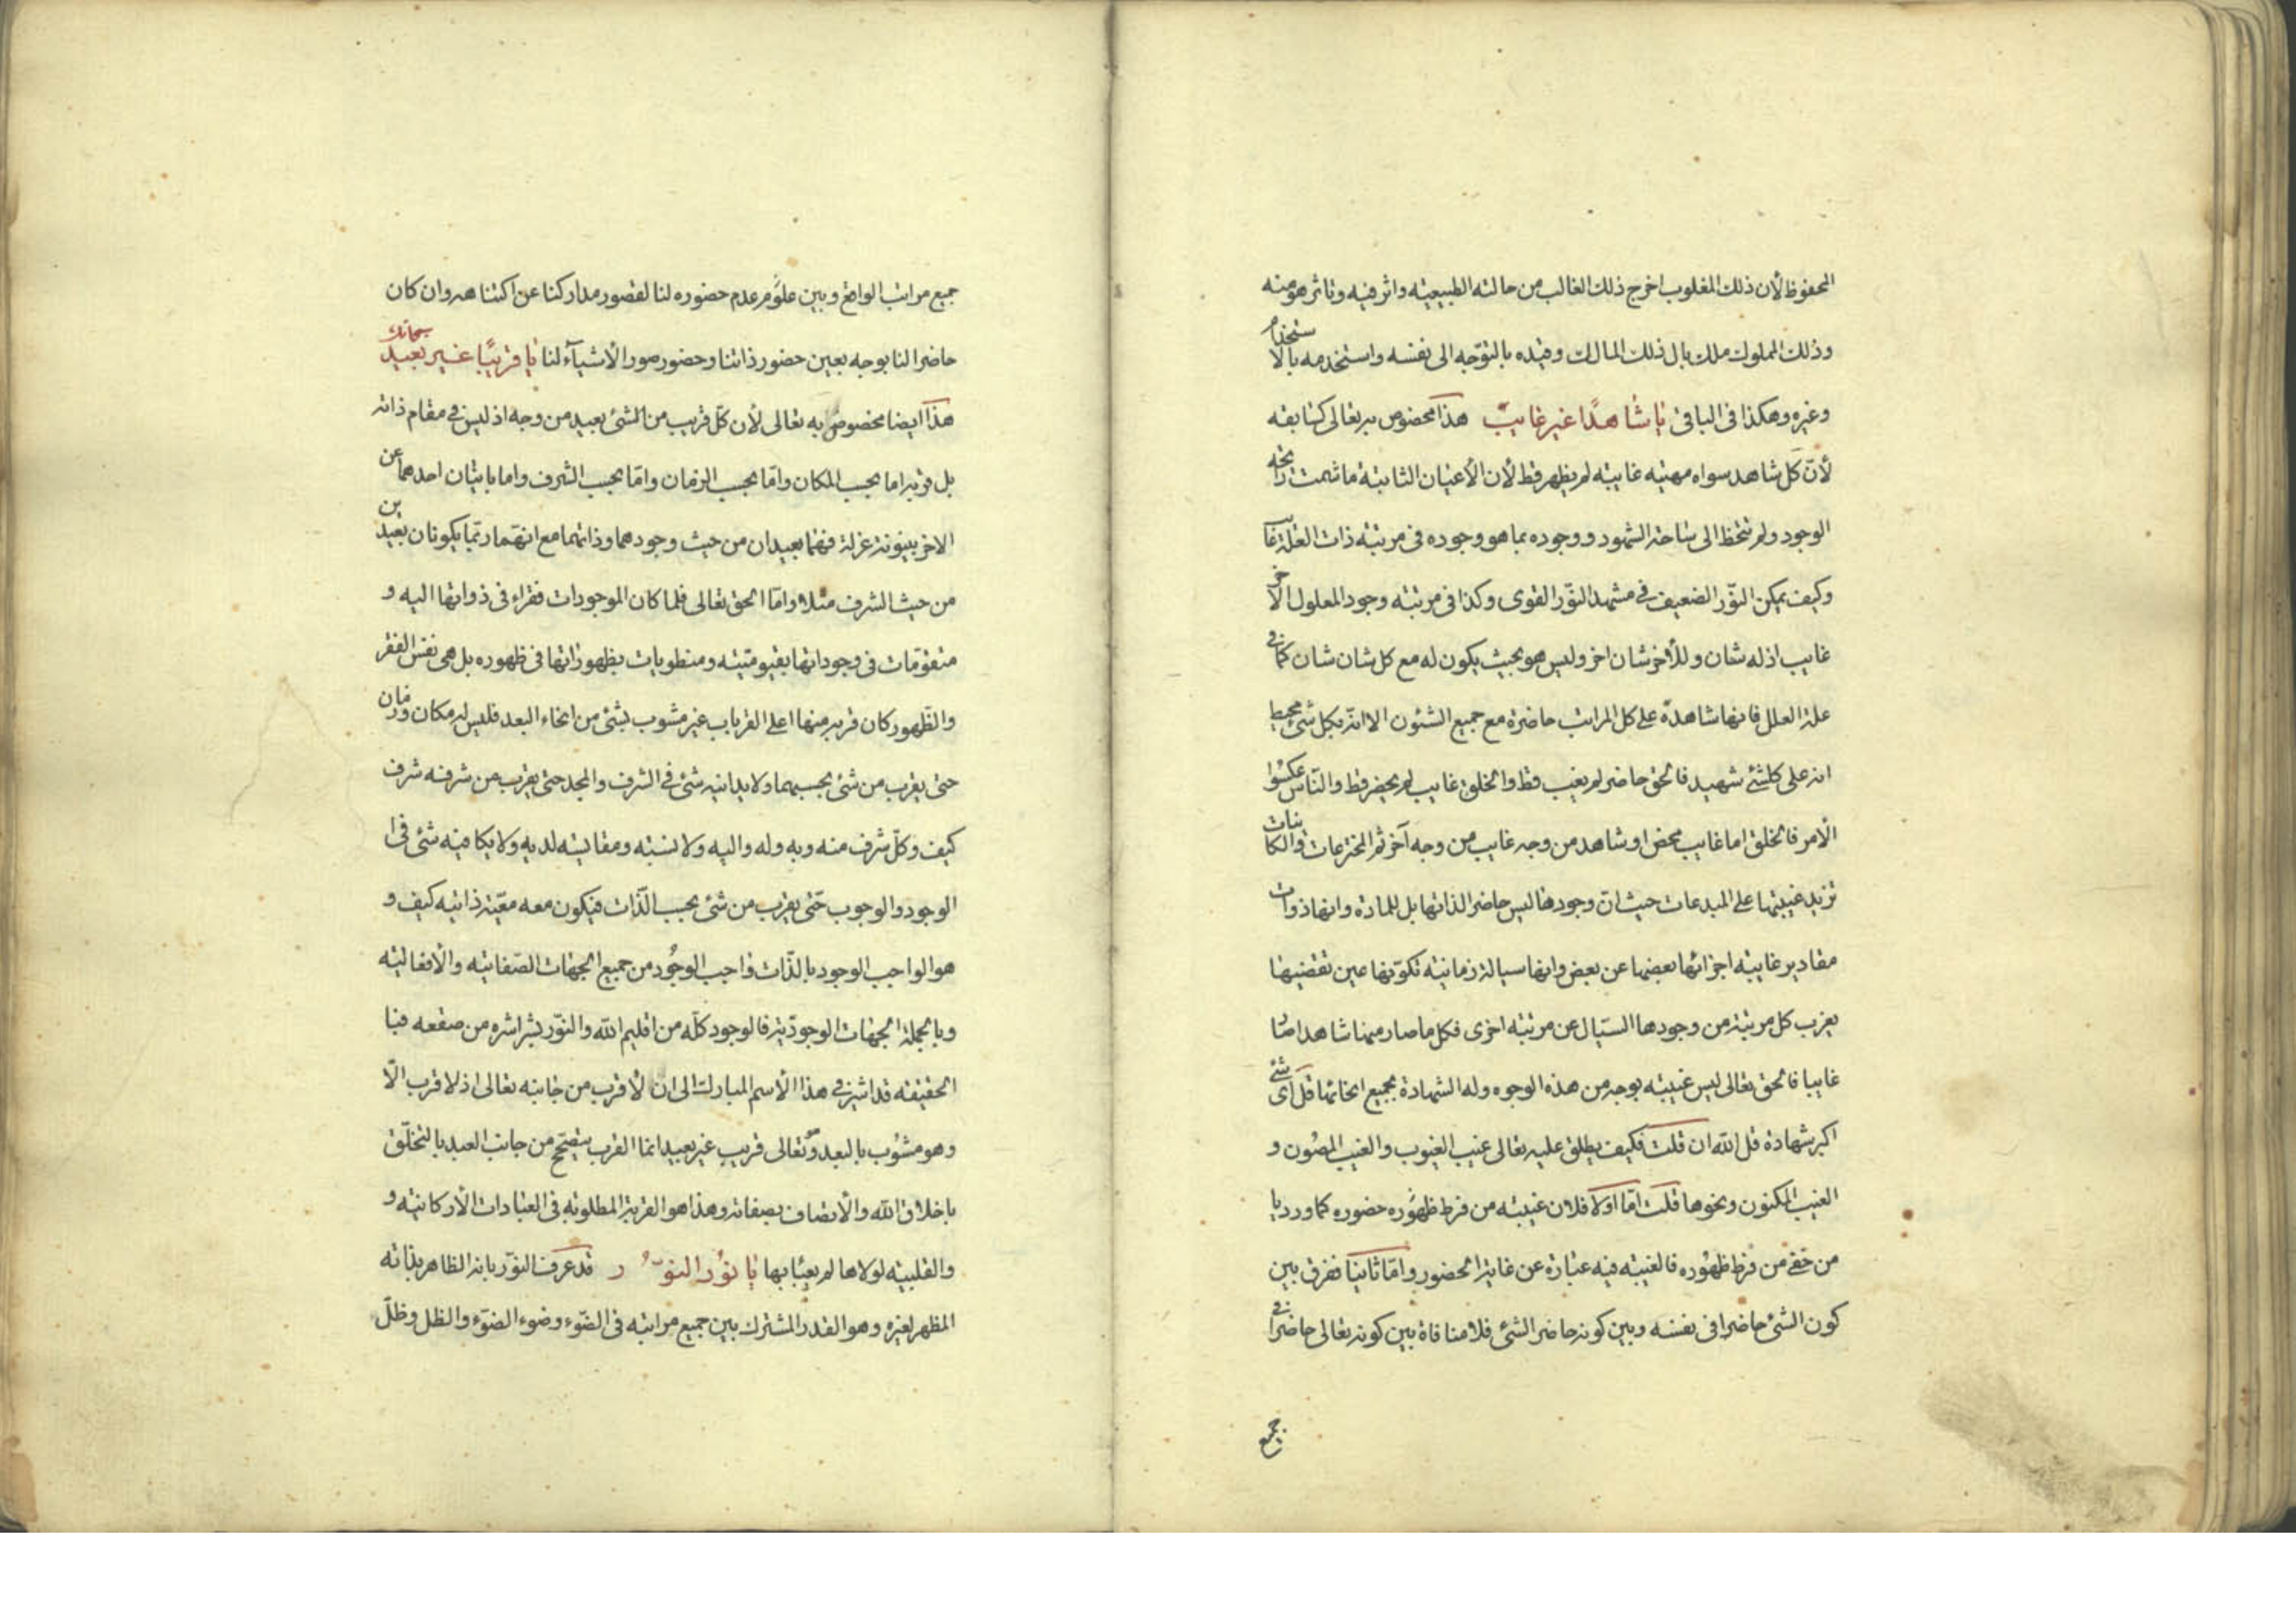 المحفوظ لأن ذلك المغلوب اخرج ذلك الغالب من حالته الطبيعيته واثر فيه وتاثر هو منه
وذلك المملوك ملك بال ذلك المالك وقيده بالتوّجه الى نفسه واستخدمه بالاستخدام
وغيره وهكذا فى الباقى يا شاهدًا غير غايب هذا مخصوص به تعالى كسابقه
لأنّ كل شاهد سواه مهيته غايبته لم يظهر قط لأن الأعيان الثابتة ما شمت رائحه
الوجود ولم تتخط الى ساحة الشهود ووجوده بما هو وجوده فى مرتبته ذات العلة غايب
وكيف يمكن النوّر الضعيف فى مشهد النوّر القوى وكذا فى مرتبته وجود المعلول الاخر
غايب اذ له شان وللأخر شان اخر وليس هو بحيث يكون له مع كل شان شان كما فى
علة العلل فانها شاهدة على كل المراتب حاضرة مع جميع الشئون الا انه بكل شئ محيط
انه على كلشئ شهيد فالحق حاضر لم يغب قط والخلق غايب لم يحضر قط والنّاس عكسوا
الأمر فالخلق اما غايب محض او شاهد من وجه غايب من وجه آخر ثم المخترعات والكاينات
تزيد غيبتها على المبدعات حيث انّ وجودها ليس حاضرا لذاتها بل للمادة وانها ذوات
مقادير غايبته اجزائها بعضها عن بعض وانها سيالة زمانيته تكوّنها عين تقضيها
يعزب كل مرتبة من وجودها السيّال عن مرتبته اخرى فكل ما صار منها شاهدا صا
غايبا فالحق تعالى ليس غيبته بوجه من هذه الوجوه وله الشهادة بجميع انحائها قل اى شئ
اكبر شهادة قل الله ان قلت فكيف يطلق عليه تعالى غيب الغيوب والغيب المصون و
الغيب المكنون ونحوها قلت امّا اولا فلان غيبته من فرط ظهوره حضوره كما ورد يا
من خفى من فرط ظهوره فالغيبته فيه عبارة عن غاية الحضور وامّا ثانيا ففرق بين
كون الشئ حاضرا فى نفسه وبين كونه حاضر الشئ فلا منافاة بين كونه تعالى حاضرا فى
جميع
جميع مراتب الواقع وبين علوّ مر عدم حضوره لنا لقصور مداركنا عن اكتناهه وان كان
حاضرا لنا بوجه بعين حضور ذاتنا وحضور صور الأشيآء لنا يا قريبًا غير بعيد سبحانك
هذا ايضا مخصوص به تعالى لأن كلّ قريب من الشئ بعيد من وجه اذ ليس فى مقام ذاته
بل قربه اما بحسب المكان وامّا بحسب الزمان وامّا بحسب الشرف واما باتيان احدهما عن
الاخر بينونة عزلة فهما بعيدان من حيث وجودهما وذاتهما مع انهما ربّما يكونان بعيدين
من حيث الشرف مثلا وامّا الحق تعالى فلما كان الموجودات فقراء فى ذواتها اليه و
متقوّمات فى وجوداتها بقيوميّته ومنطويات بظهوراتها فى ظهوره بل هى نفس الفقر
والظّهور كان قربه منها اعلى القربات غير مشوب بشئ من انحاء البعد فليس له مكان وزمان
حتى يقرب من شئ بحسبهما ولا يدانيه شئ فى الشرف والمجد حتى يقرب من شرفه شرف
كيف وكلّ شرف منه وبه وله واليه ولا نسبته ومقايسته لديه ولا يكافيه شئ فى
الوجود والوجوب حتّى يقرب من شئ بحسب الذّات فيكون معه معيّته ذاتيه كيف و
هو الواجب الوجود بالذّات واجب الوجود من جميع الجهات الصّفايته والأفعاليته
وبالجملة الجهات الوجوديّة فالوجود كلّه من اقليم الله والنوّر بشراشره من صقعه فبا
الحقيقه قد اشير فى هذا الأسم المبارك الى ان لا قرب من جانبه تعالى اذ لا قرب الّا
وهو مشوب بالبعد وهو تعالى قريب غير بعيد انما القرب يتصحّح من جانب العبد بالتخلّق
باخلاق الله والأتصاف بصفاته وهذا هو القربة المطلوبه فى العبادات الأركانيته و
والقلبيته لولاها لم يعبئا بها يا نور النور قد عرف النوّر بانه الظاهر بذاته
المظهر لغيره وهو القدر المشترك بين جميع مراتبه فى الضّوء وضوء الضوّء والظل وظلّ